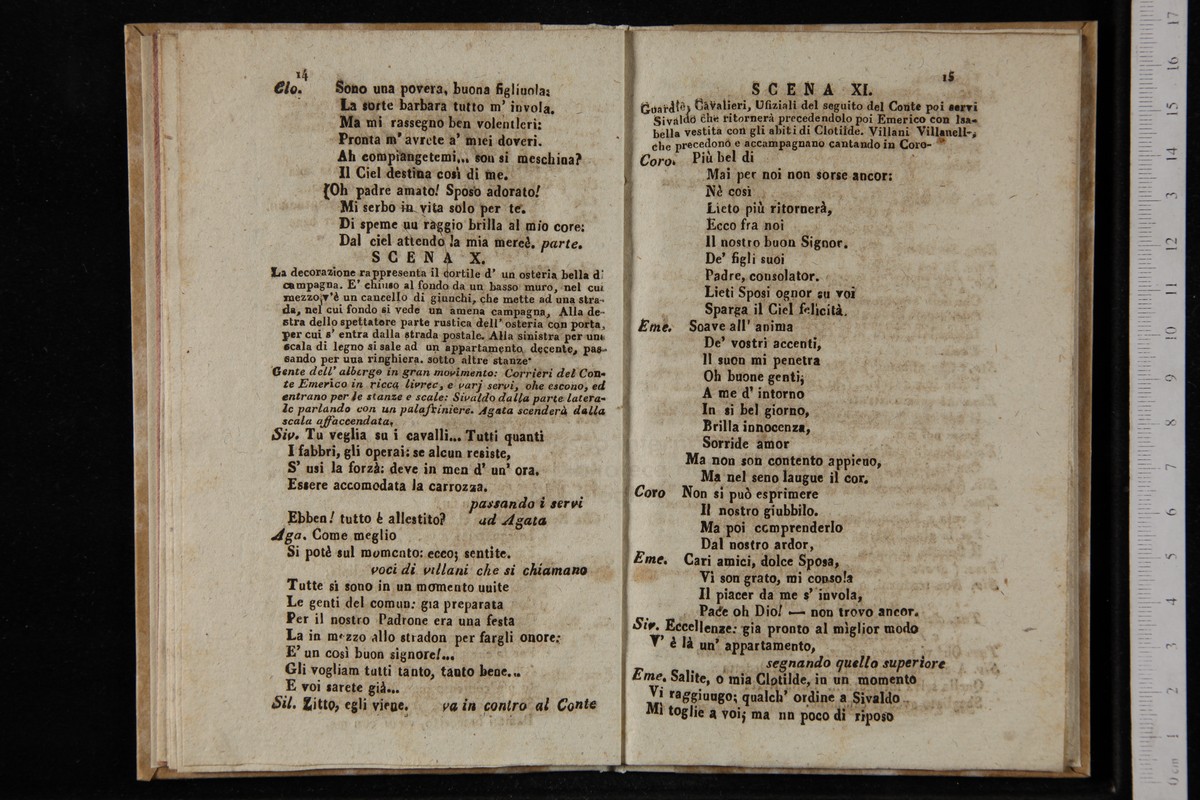 14
Clo. Sono una povera, buona figliuola;
La sorte barbara tutto m' invola.
Ma mi rassegno ben volentieri:
Pronta m' avrete a' miei doveri.
Ah compiangetemi... son si meschina?
Il Ciel destina così di me.
(Oh padre amato! Sposo adorato!
Mi serbo in vita solo per te.
Di speme uu raggio brilla al mio core;
Dal ciel attendo la mia mercè. parte.
SCENA X.
La decorazione rappresenta il cortile d' un osteria bella d'
campagna. E' chiuso al fondo da un basso muro, nel cui
mezzo v'è un cancello di giunchi, che mette ad una stra-
da, nel cui fondo si vede un amena campagna, Alla de-
stra dello spettatore parte rustica dell' osteria con porta,
per cui s' entra dalla strada postale. Alla sinistra per una
scala di legno si sale ad un appartamento decente, pas-
sando per una ringhiera. sotto altre stanze
Gente dell' albergo in gran movimento: Corrieri del Con-
te Emerico in ricca livrec, e varj servi, ohe escono, ed
entrano per le stanze e scale: Sivaldo dalla parte latera-
le parlando con un palafriniere. Agata scenderà dalla
scala affaccendata,
Siv. Tu veglia su i cavalli... Tutti quanti
I fabbri, gli operai: se alcun resiste,
S' usi la forzà: deve in men d' un' ora.
Essere accomodata la carrozza.
passando i servi
Ebben! tutto è allestito? ad Agata
Aga. Come meglio
Si potè sul momento: ecco; sentite.
voci di villani che si chiamano
Tutte si sono in un momento unite
Le genti del comun: gia preparata
Per il nostro Padrone era una festa
La in mezzo allo stradon per fargli onore:
E' un così buon signore!...
Gli vogliam tutti tanto, tanto bene...
E voi sarete già...
Sil. Zitto, egli viene. va in contro al Conte
15
SCENA XI.
Guardie, Cavalieri, Ufiziali del seguito del Conte poi servi
Sivaldo che ritornerà precedendolo poi Emerico con Isa-
bella vestita con gli abiti di Clotilde. Villani Villanell-,
che precedono e accampagnano cantando in Coro-
Coro. Più bel di
Mai per noi non sorse ancor:
Nè così
Lieto più ritornerà,
Ecco fra noi
Il nostro buon Signor.
De' figli suoi
Padre, consolator.
Lieti Sposi ognor su voi
Sparga il Ciel felicità.
Eme. Soave all' anima
De' vostri accenti,
Il suon mi penetra
Oh buone genti;
A me d' intorno
In si bel giorno,
Brilla innocenza,
Sorride amor
Ma non son contento appieno,
Ma nel seno langue il cor.
Coro Non si può esprimere
Il nostro giubbilo.
Ma poi comprenderlo
Dal nostro ardor,
Eme. Cari amici, dolce Sposa,
Vi son grato, mi consola
Il piacer da me s' invola,
Pace oh Dio! — non trovo ancor.
Siv. Eccellenze: gia pronto al miglior modo
V' è là un' appartamento,
segnando quello superiore
Eme. Salite, o mia Clotilde, in un momento
Vi raggiuugo; qualch' ordine a Sivaldo
Mi toglie a voi; ma nn poco di riposo